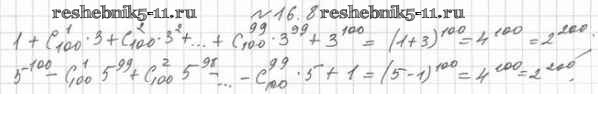 reshebnik5-11.ru №16.8 reshebnik5-11.ru
1 + C₁₀₀¹ · 3 + C₁₀₀² · 3² + ... + C₁₀₀⁹⁹ · 3⁹⁹ + 3¹⁰⁰ = (1+3)¹⁰⁰ = 4¹⁰⁰ = 2²⁰⁰.
5¹⁰⁰ - C₁₀₀¹ 5⁹⁹ + C₁₀₀² 5⁹⁸ - ... - C₁₀₀⁹⁹ · 5 + 1 = (5-1)¹⁰⁰ = 4¹⁰⁰ = 2²⁰⁰